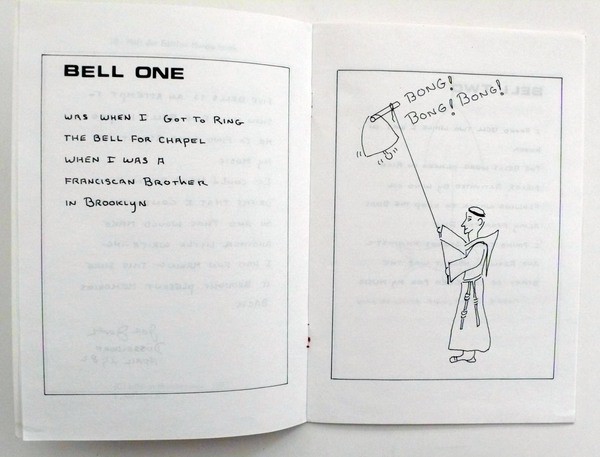 BELL ONE
WAS WHEN I GOT TO RING
THE BELL FOR CHAPEL
WHEN I WAS A
FRANCISCAN BROTHER
IN BROOKLYN
BONG!
BONG! BONG!